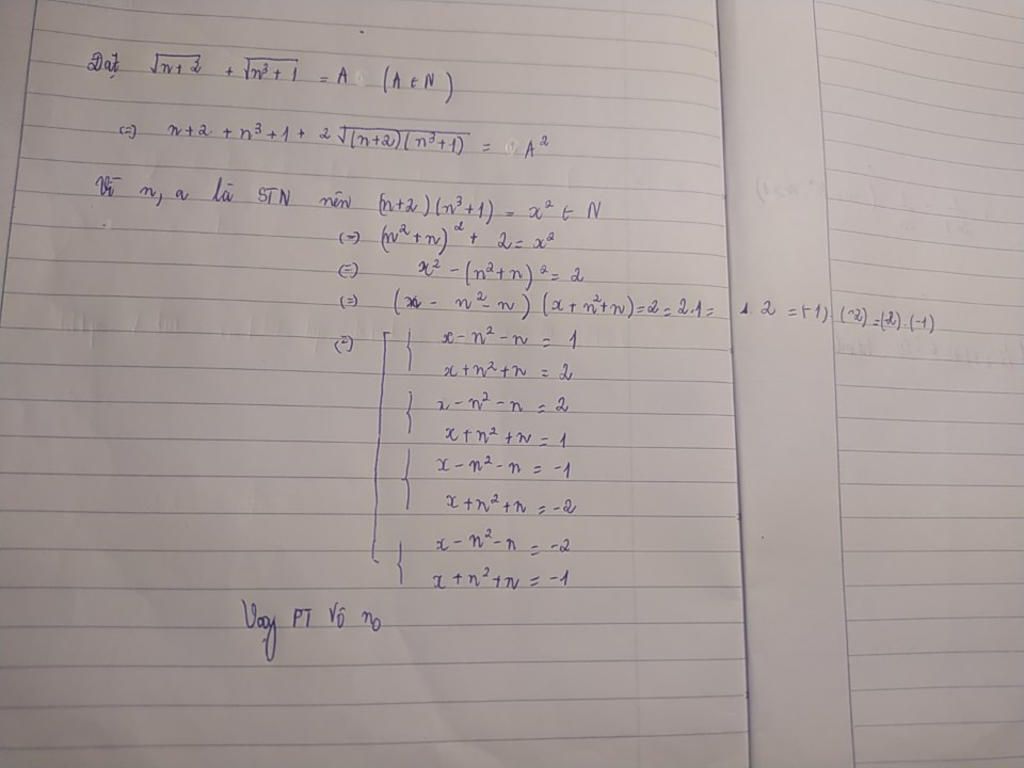 Đặt √(n+2) + √(n³+1) = A (A ∈ N)
(=) n+2 + n³+1 + 2√((n+2)(n³+1)) = A²
Vì n, a là STN nên (n+2)(n³+1) = x² ∈ N
(=) (n²+n)² + 2 = x²
(=) x² - (n²+n)² = 2
(=) (x - n² - n) (x + n² + n) = 2 = 2.1 = 1.2 = (-1).(-2) = (-2).(-1)
(=) x - n² - n = 1
x + n² + n = 2
x - n² - n = 2
x + n² + n = 1
x - n² - n = -1
x + n² + n = -2
x - n² - n = -2
x + n² + n = -1
Vậy PT Vô n₀